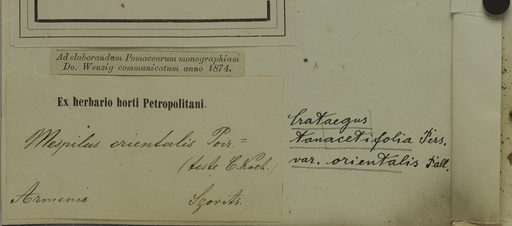 Ad elaborandam Pomacearum monographiam
Do. Wenzig communicatum anno 1874.
Ex herbario horti Petropolitani.
Mespilus orientalis Poir.=
(teste C. Koch.)
Armenia Szovits.
Crataegus
tanacetifolia Pers.
var. orientalis Pall.